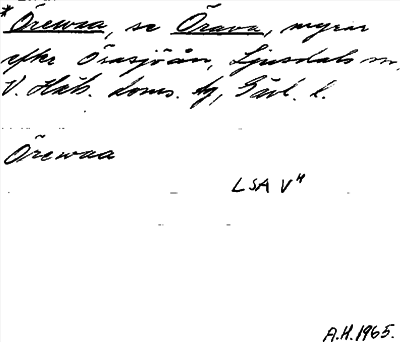 * Örewaa, se Örava, myrar
efter Örasjöån, Ljusdals sn,
V. Häls. doms. tg, Gävl. l.
Örewaa
LSA V"
A.H. 1965.